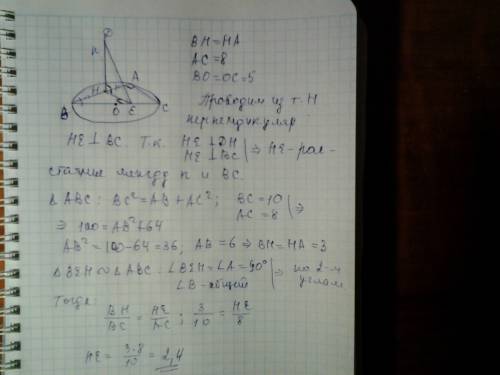 D
n
H
A
B
O
E
C
BH=HA
AC=8
BO=OC=5
Проводим из т. H
перпендикуляр
HE⊥BC. Т.к. HE⊥DH
HE⊥BC ⇒ HE-рас-
стояние между n и BC.
ΔABC: BC²=AB+AC²; BC=10
AC=8 ⇒
⇒ 100=AB²+64
AB²=100-64=36; AB=6 ⇒ BH=HA=3
ΔBEH∾ΔABC: ∠BEH=∠A=90°
∠B-общий ⇒ по 2-м
углам
Тогда:
BH/BC = HE/AC; 3/10 = HE/8
HE = 3·8/10 = 2,4